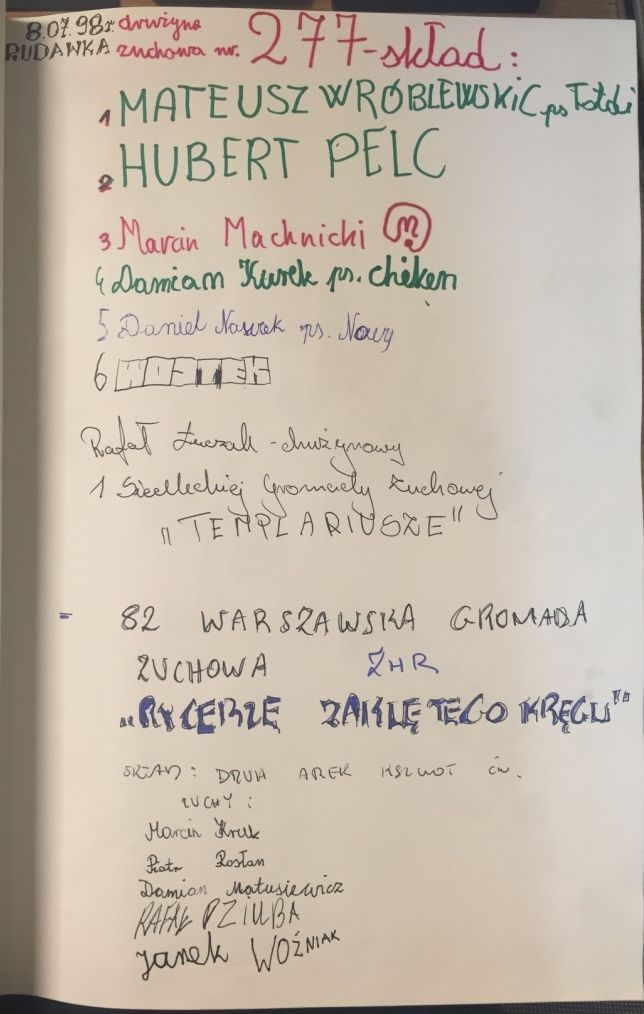 8.07.98r. drużyna
RUDAWKA zuchowa nr. 277-skład:
1 MATEUSZ WRÓBLEWSKI ps
2 HUBERT PELC
3 Marcin Machnicki M
4 Damian Kurek ps. chiken
5 Daniel Nawrek ps. Nowy
6 WOJTEK
Rafał - drużynowy
1 Siedleckiej Gromady Zuchowej
"TEMPLARIUSZE"
82 WARSZAWSKA GROMADA
ZUCHOWA ZHR
"RYCERZE ZAKLĘTEGO KRĘGU"
SKŁAD: DRUH AREK ćw.
ZUCHY:
Marcin Kruk
Piotr Rosłan
Damian Matusiewicz
RAFAŁ DZIUBA
Janek WOŹNIAK